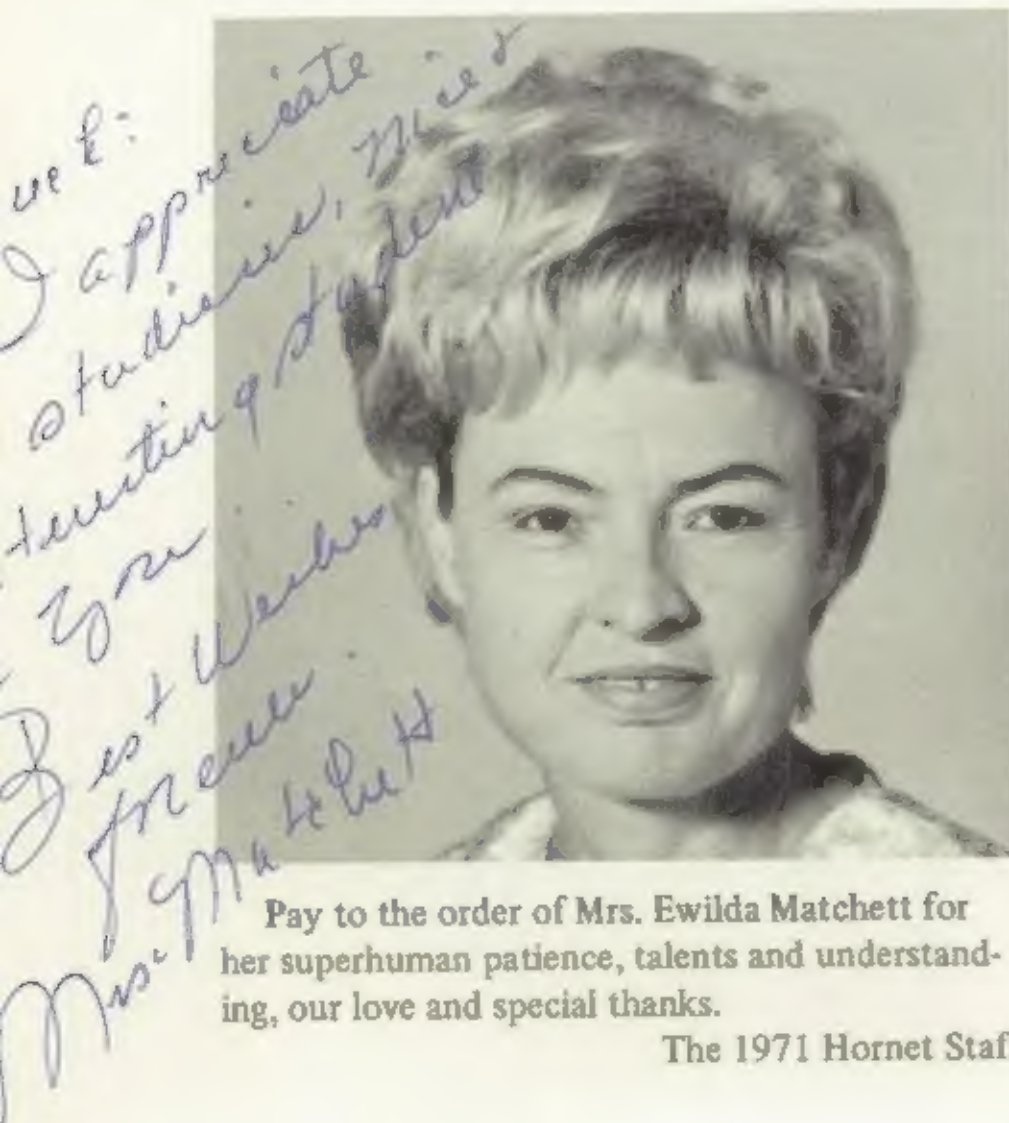 I appreciate
studious, nice &
student
you
Best Wishes
Mrs. Matchett
Pay to the order of Mrs. Ewilda Matchett for
her superhuman patience, talents and understand-
ing, our love and special thanks.
The 1971 Hornet Staf